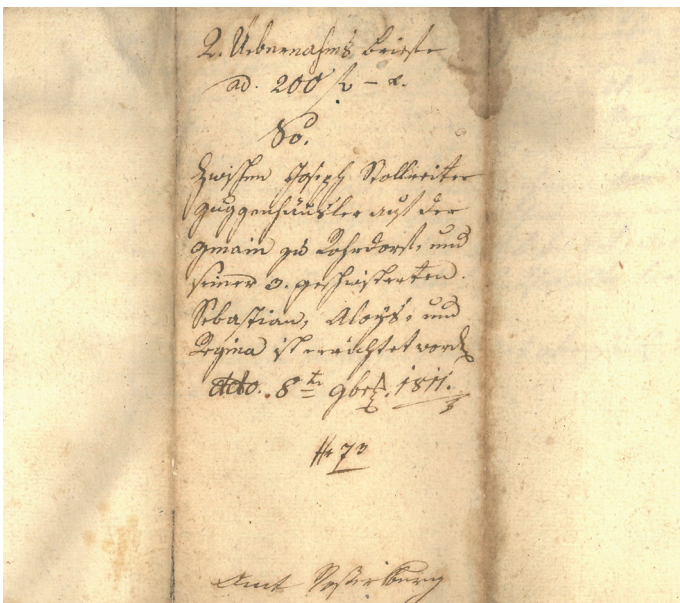 2. Uebernahms briefe
ad. 200 f
So.
Zwischen Joseph Stollreiter
guggenhäusler auf der
gmain zu Rohrdorf, und
seiner 3. geschwisterten.
Sebastian, Aloys, und
Regina ist errichtet word
dto. 8ten 9ber. 1811.
73
Amt